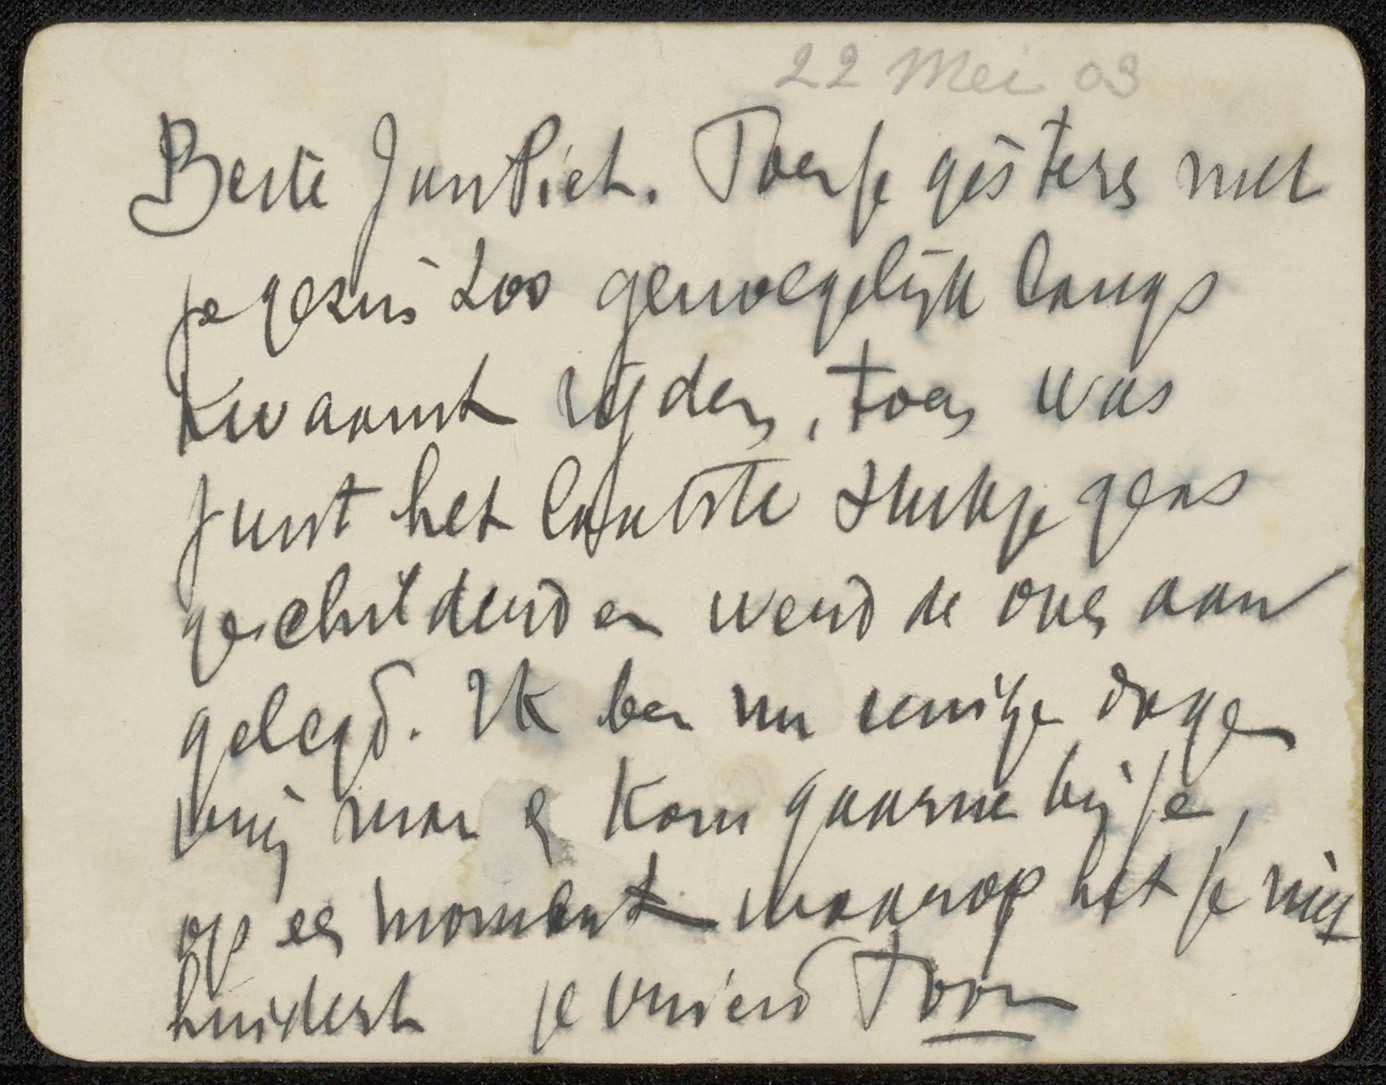 22 Mei 03
Beste Jan Piet. Toen je gisteren met
je gezin zoo genoegelijk langs
kwaamt rijden, toen was
juist het laatste stukje glas
geschilderd en werd de oven aan
gelegd. Ik ben nu eenige dagen
vrij man & kom gaarne bij je,
op een moment waarop het je niet
hindert je vriend Toon